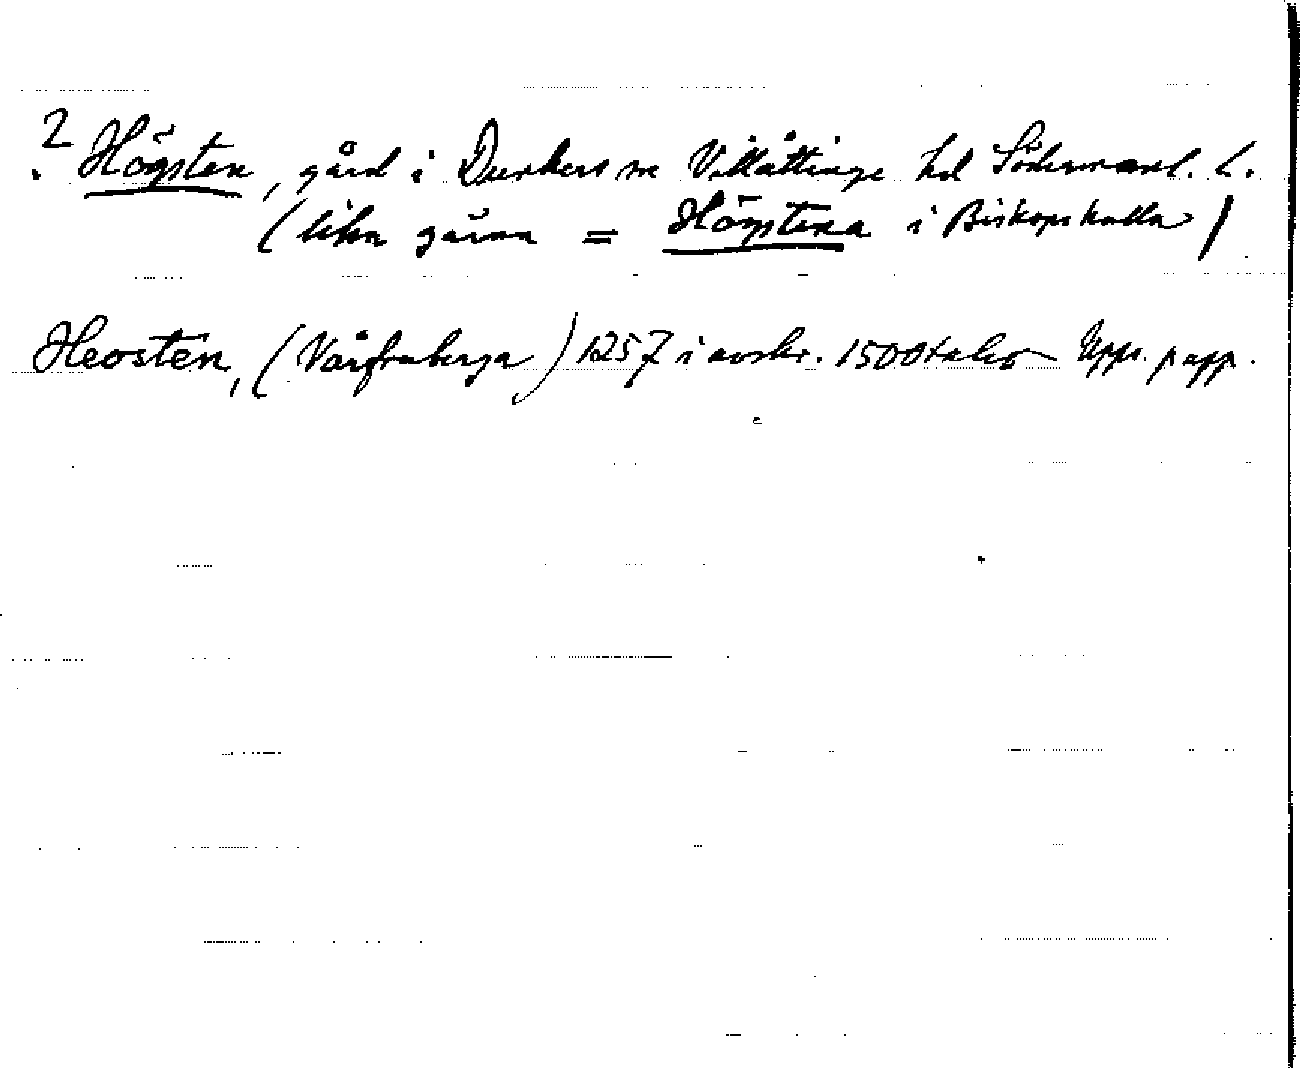 ? Högsten, gård i Dunkers sn Villåttinge hd Södermanl. L.
(lika gärna = Högstena i Biskopskulla)
Heosten, (Vårfruberga) 1257 i avskr. 1500talet Upps. papp.